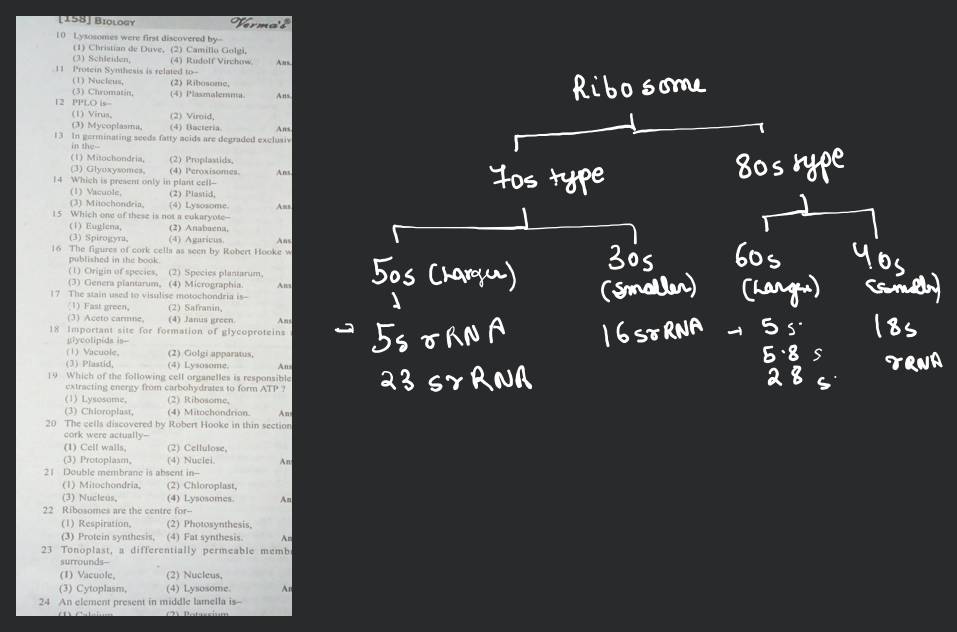 [158] BIOLOGY Verma's®
10 Lysosomes were first discovered by–
(1) Christian de Duve, (2) Camillo Golgi,
(3) Schleiden, (4) Rudolf Virchow. Ans.
11 Protein Synthesis is related to–
(1) Nucleus, (2) Ribosome,
(3) Chromatin, (4) Plasmalemma. Ans.
12 PPLO is–
(1) Virus, (2) Viroid,
(3) Mycoplasma, (4) Bacteria. Ans.
13 In germinating seeds fatty acids are degraded exclusiv
in the–
(1) Mitochondria, (2) Proplastids,
(3) Glyoxysomes, (4) Peroxisomes. Ans.
14 Which is present only in plant cell–
(1) Vacuole, (2) Plastid,
(3) Mitochondria, (4) Lysosome. Ans.
15 Which one of these is not a eukaryote–
(1) Euglena, (2) Anabaena,
(3) Spirogyra, (4) Agaricus. Ans
16 The figures of cork cells as seen by Robert Hooke w
published in the book.
(1) Origin of species, (2) Species plantarum,
(3) Genera plantarum, (4) Micrographia. Ans
17 The stain used to visulise motochondria is–
(1) Fast green, (2) Safranin,
(3) Aceto carmne, (4) Janus green. Ans
18 Important site for formation of glycoproteins
glycolipids is–
(1) Vacuole, (2) Golgi apparatus,
(3) Plastid, (4) Lysosome. Ans
19 Which of the following cell organelles is responsible
extracting energy from carbohydrates to form ATP ?
(1) Lysosome, (2) Ribosome,
(3) Chloroplast, (4) Mitochondrion. Ans
20 The cells discovered by Robert Hooke in thin section
cork were actually–
(1) Cell walls, (2) Cellulose,
(3) Protoplasm, (4) Nuclei. An
21 Double membrane is absent in–
(1) Mitochondria, (2) Chloroplast,
(3) Nucleus, (4) Lysosomes. An
22 Ribosomes are the centre for–
(1) Respiration, (2) Photosynthesis,
(3) Protein synthesis, (4) Fat synthesis. An
23 Tonoplast, a differentially permeable memb
surrounds–
(1) Vacuole, (2) Nucleus,
(3) Cytoplasm, (4) Lysosome. An
24 An element present in middle lamella is–
(1) Calcium (2) Potassium
Ribosome
70s type 80s type
50s (Larger) 30s (smaller) 60s (Larger) 40s
→ 5s rRNA 16 srRNA → 5 s. 18s
23 srRNA 5.8 s rRNA
28 s.